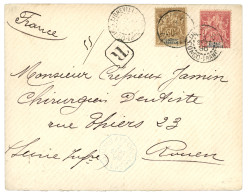 France
R
Monsieur Crépieux Jamin
Chirurgien Dentiste
rue Thiers 23
Rouen
(Seine Infre)